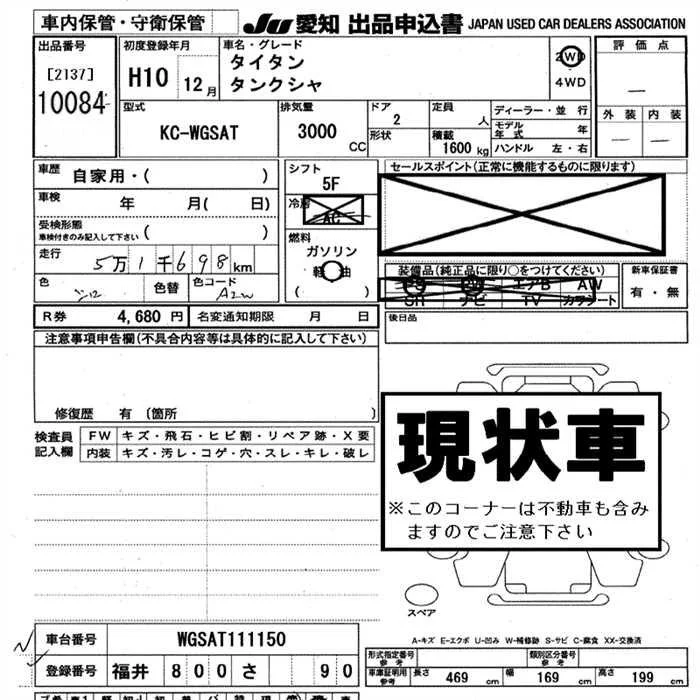 車内保管・守衛保管
JU 愛知 出品申込書 JAPAN USED CAR DEALERS ASSOCIATION
出品番号
[2137]
10084
初度登録年月
H10 12月
車名・グレード
タイタン
タンクシャ
2WD
4WD
評価点
—
外装 内装
— —
型式
KC-WGSAT
排気量
3000 CC
ドア
2
形状
定員
人
積載
1600 kg
ディーラー・並行
モデル年式 年
ハンドル 左・右
車歴
自家用・( )
車検
年 月( 日)
受検形態
車検付きのみ記入して下さい ( )
走行
5万1千698km
色
シロ
色替
色コード
A2W
シフト
5F
冷房
AC
燃料
ガソリン
軽油
( )
セールスポイント(正常に機能するものに限ります)
装備品(純正品に限り○をつけてください)
PS PW エアB AW
SR ナビ TV カワシート
新車保証書
有・無
R券 4,680円 名変通知期限 月 日
後日品
注意事項申告欄(不具合内容等は具体的に記入して下さい)
修復歴 有 (箇所 )
検査員記入欄
FW キズ・飛石・ヒビ割・リペア跡・X要
内装 キズ・汚レ・コゲ・穴・スレ・キレ・破レ
現状車
※このコーナーは不動車も含み
ますのでご注意下さい
スペア
A-キズ E-エクボ U-凹み W-補修跡 S-サビ C-腐食 XX-交換済
車台番号 WGSAT111150
登録番号 福井 800 さ 90
形式指定番号 参考
類別区分番号 参考
車庫証明用 参考 長さ 469 cm 幅 169 cm 高さ 199 cm